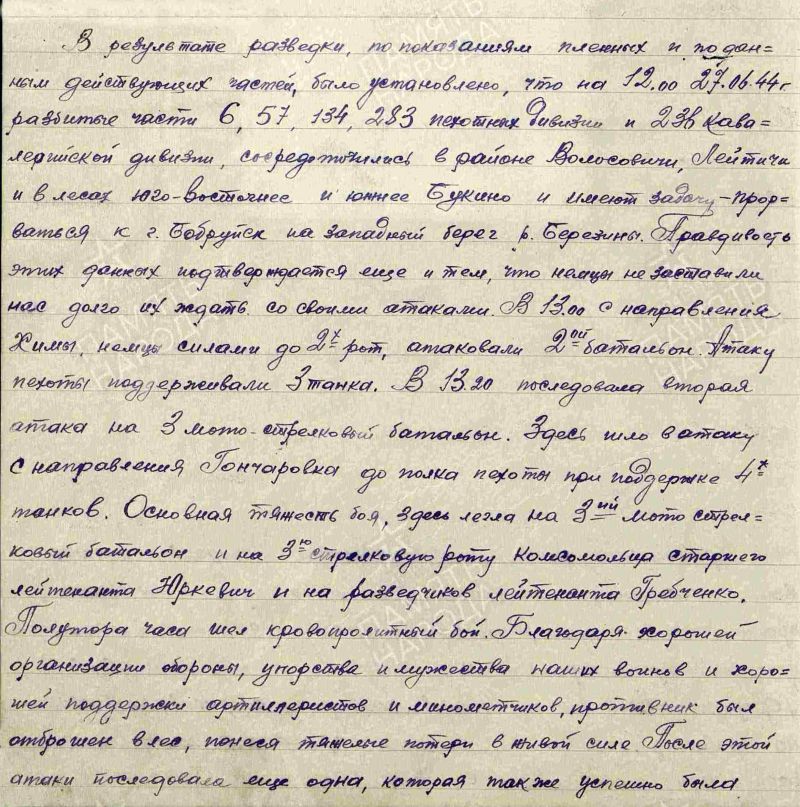 В результате разведки, по показаниям пленных и по дан=
ным действующих частей, было установлено, что на 12.00 27.06.44г
разбитые части 6, 57, 134, 283 пехотных дивизии и 23й кава=
лерийской дивизии, сосредоточились в районе Волосовичи, Лейтичи
и в лесах юго-восточнее и южнее Букино и имеют задачу - прор=
ваться к г. Бобруйск на западный берег р. Березины. Правдивость
этих данных подтверждается еще и тем, что немцы не заставили
нас долго их ждать со своими атаками. В 13.00 с направления
Химы, немцы силами до 2х рот, атаковали 2ой батальон. Атаку
пехоты поддерживали 3 танка. В 13.20 последовала вторая
атака на 3 мото-стрелковый батальон. Здесь шло в атаку
с направления Гончаровка до полка пехоты при поддержке 4х
танков. Основная тяжесть боя, здесь легла на 3ий мото стрел=
ковый батальон и на 3ю стрелковую роту комсомольца старшего
лейтенанта Юркевич и на разведчиков лейтенанта Гребченко.
Полутора часа шел кровопролитный бой. Благодаря хорошей
организации обороны, упорства и мужества наших воинов и хоро=
шей поддержки артиллеристов и минометчиков, противник был
отброшен в лес, понеся тяжелые потери в живой силе После этой
атаки последовала еще одна, которая также успешно была
ПАМЯТЬ НАРОДА